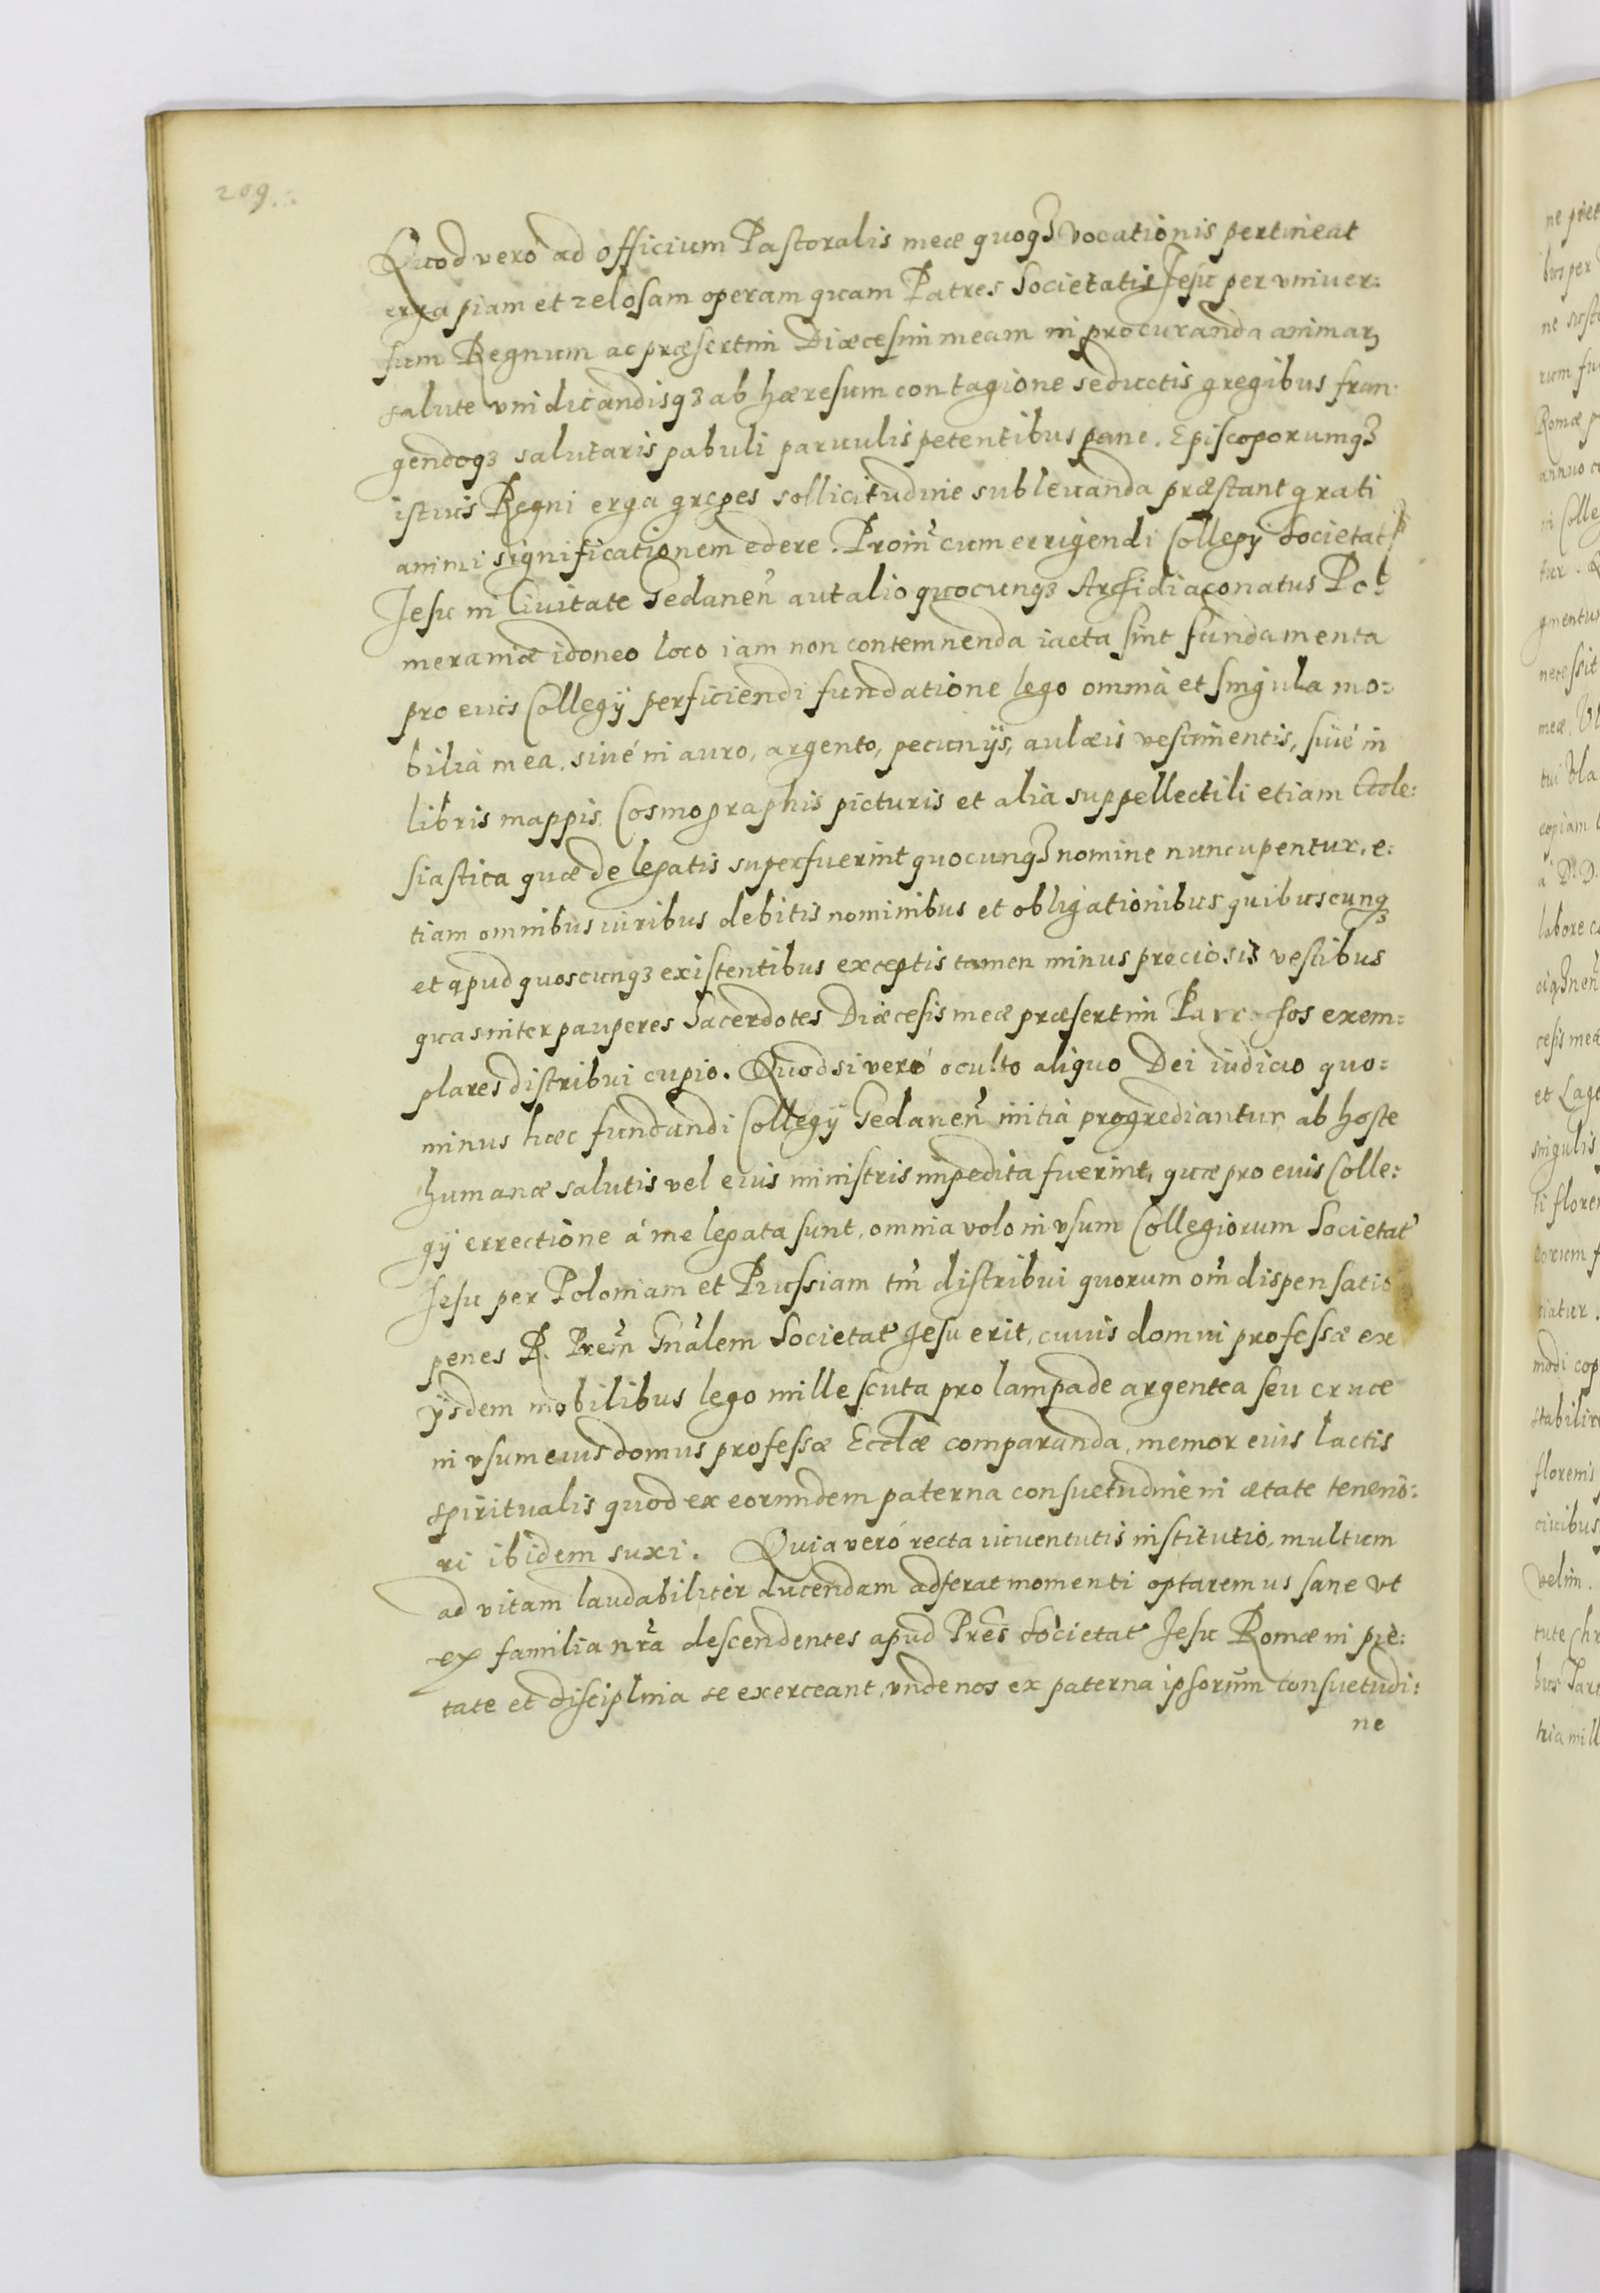 209.
Quod verò ad officium Pastoralis meæ quoqꝫ vocationis pertineat
erga piam et zelosam operam quam Patres Societatis Jesu per vniuer:
sum Regnum ac præsertim Diœcesim meam in procuranda animarꝫ
salute vindicandisqꝫ ab hæresum contagione seductis gregibus fran:
gendoqꝫ salutaris pabuli paruulis petentibus pane, Episcoporumqꝫ
istius Regni erga greges sollicitudine subleuanda præstant grati
animi significationem edere. Proin̄ cum errigendi Collegy Societat
Jesu in Ciuitate Gedanen̄ aut alio quocunqꝫ Archidiaconatus Po:
meraniæ idoneo loco iam non contemnenda iacta sint fundamenta
pro eius Collegij perficiendi fundatione lego omnia et singula mo:
bilia mea, siué in auro, argento, pecunijs, aulæis vestimentis, siué in
libris mappis Cosmographis picturis et alia suppellectili etiam Eccle:
siastica quæ de legatis superfuerint quocunqꝫ nomine nuncupentur, e:
tiam omnibus iuribus debitis nominibus et obligationibus quibuscunqꝫ
et apud quoscunqꝫ existentibus exceptis tamen minus preciosis vestibus
quas inter pauperes Sacerdotes Diæcesis meæ præsertim Parochos exem:
plares distribui cupio. Quod si veró oculto aliquo Dei iudicio quo:
minus hæc fundandi Collegij Gedanen̄ initia progrediantur ab hoste
humanæ salutis vel eius ministris impedita fuerint, quæ pro euis Colle:
gij errectione á me legata sunt, omnia volo in vsum Collegiorum Societat
Jesu per Poloniam et Prussiam tm̄ distribui quorum om̄ dispensatio
penes R. Prem̄ Gn̄alem Societat Jesu erit, cuius domui professæ ex
ijsdem mobilibus lego mille scuta pro lampade argentea seu cruce
in vsum eius domus professæ Eccl̄æ comparanda, memor euis lactis
spiritualis quod ex eorundem paterna consuetudine in ætate tenerio:
ri ibidem suxi. Quia veró recta iuuentutis institutio, multum
ad vitam laudabilitér ducendam adferat momenti optaremus sane vt
ex familia nr̄a descendentes apud Pres̄ Societat Jesu Romæ in pie:
tate et disciplina se exerceant, vnde nos ex paterna ipsorum consuetudi:
ne